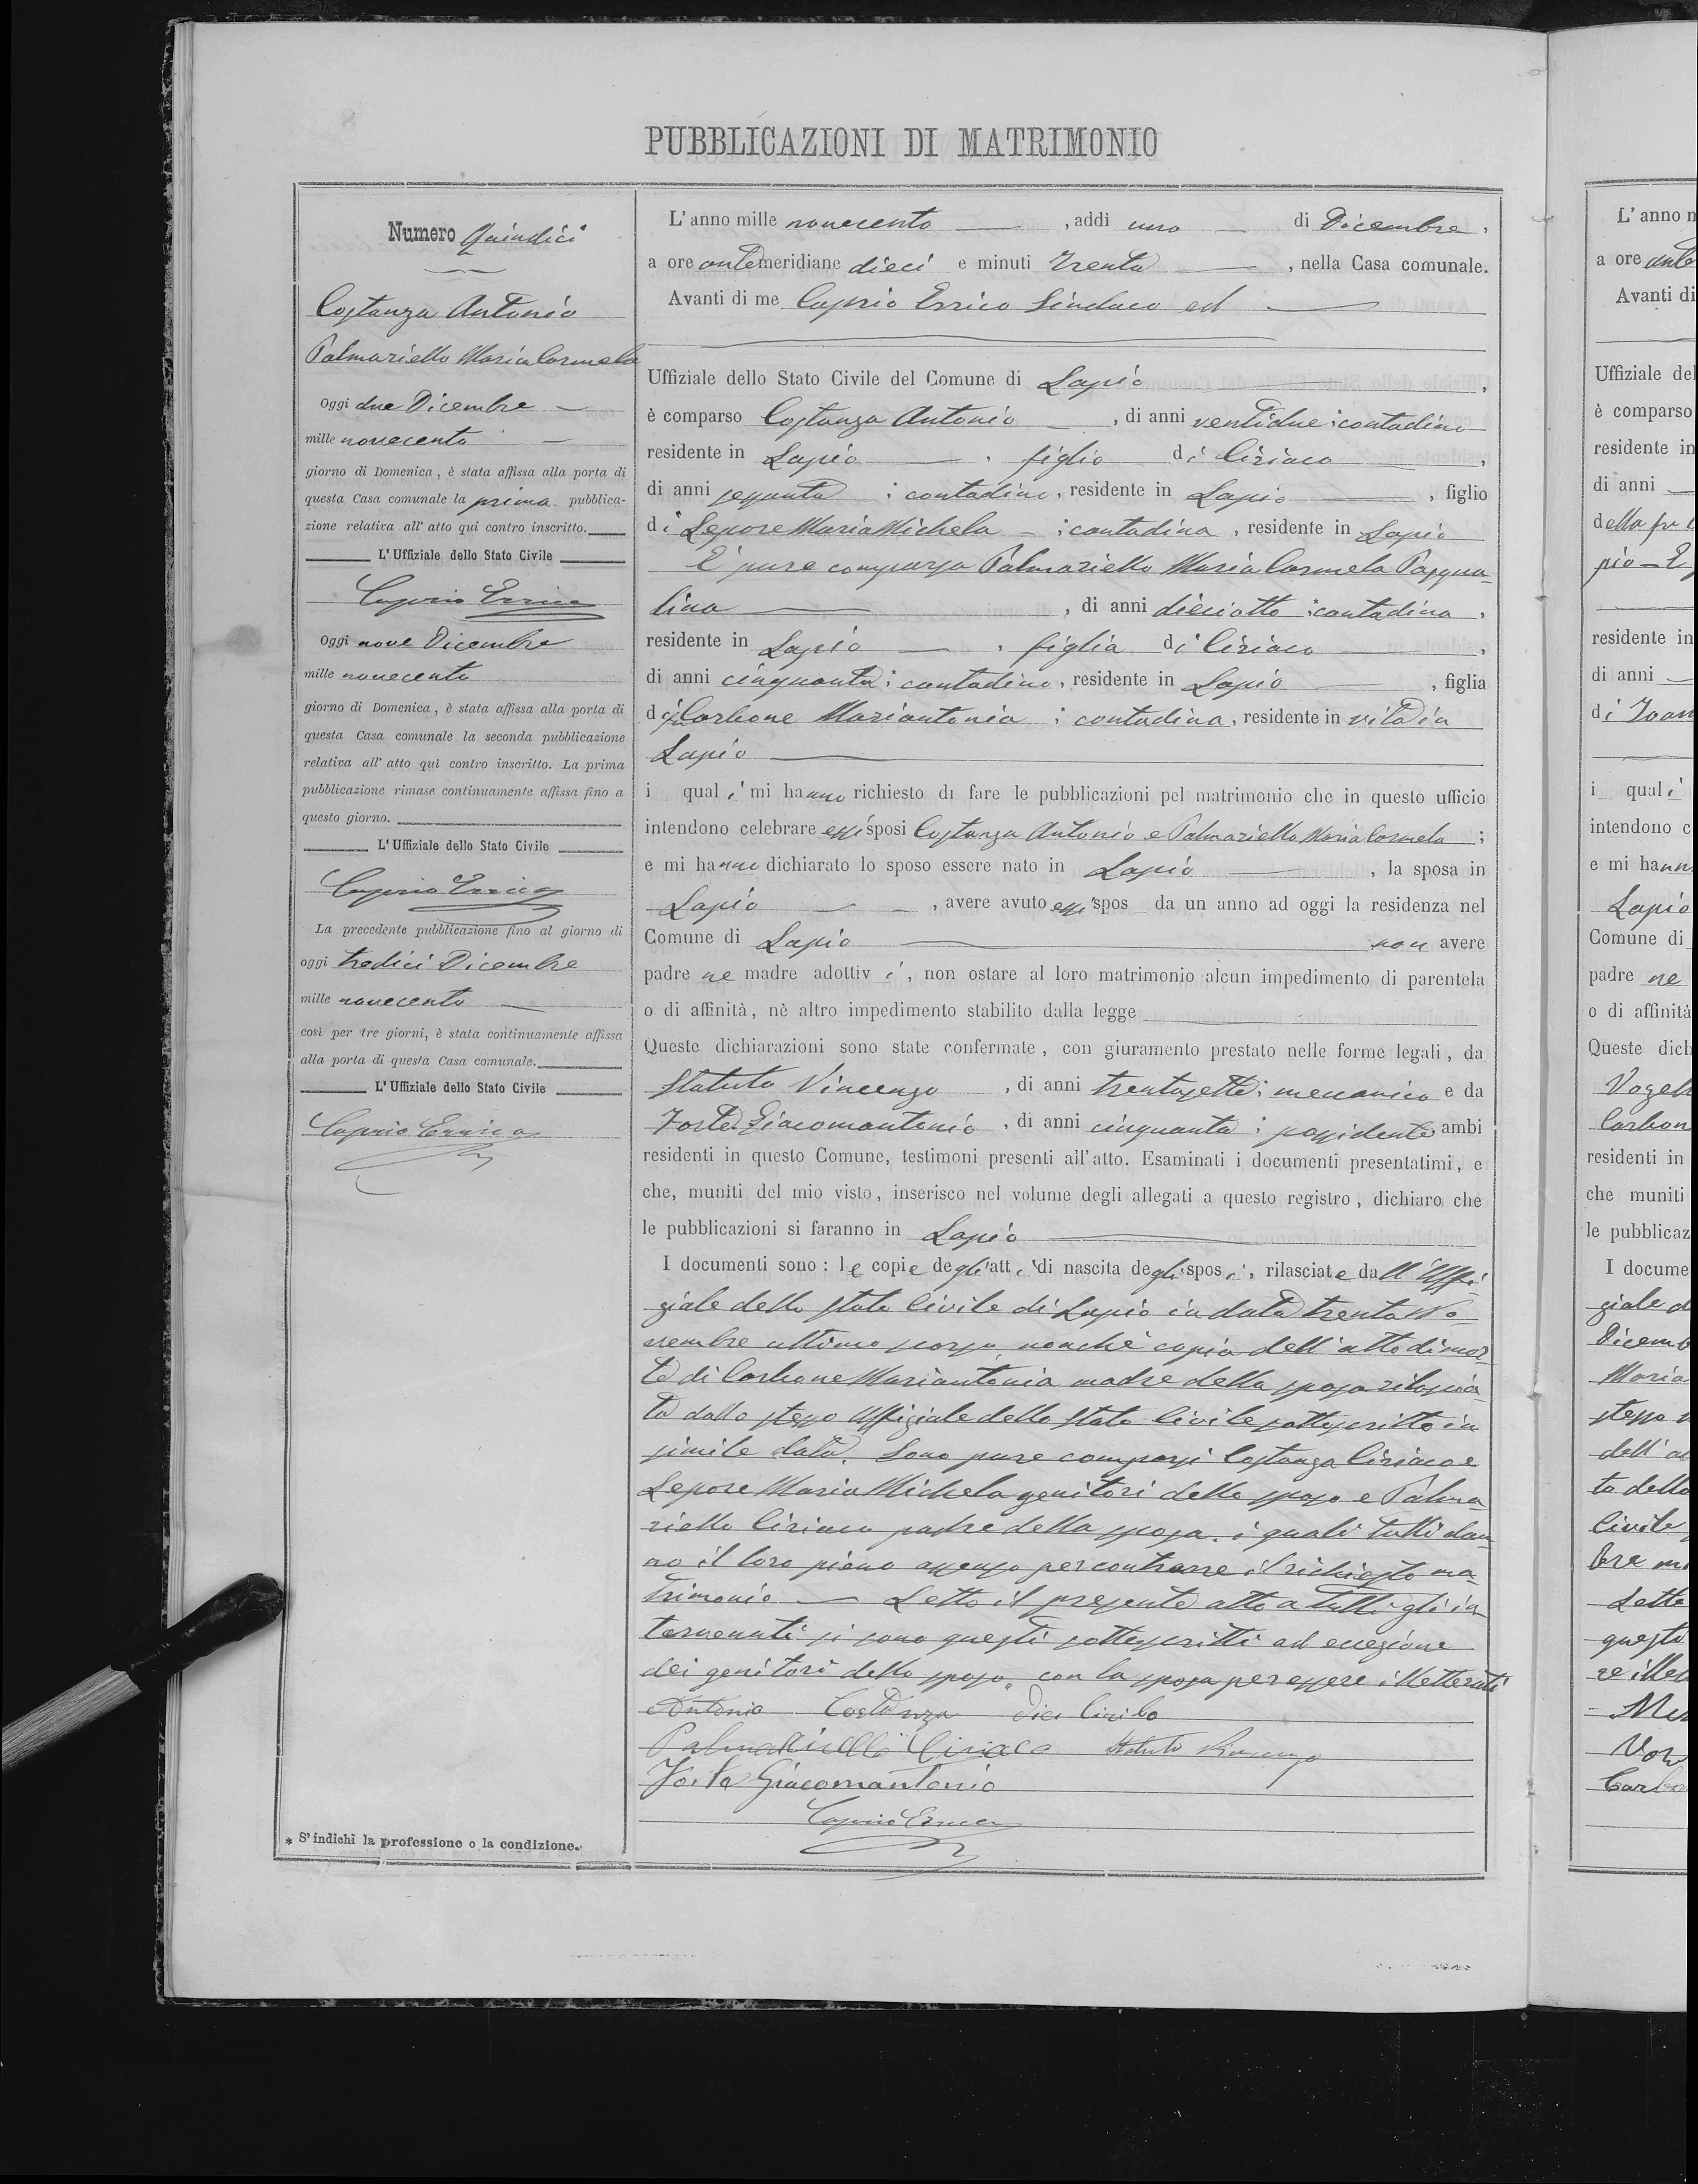 PUBBLICAZIONI DI MATRIMONIO
Numero Quindici
Costanza Antonio
Palmariello Maria Carmela
Oggi due Dicembre
mille novecento
giorno di Domenica, è stata affissa alla porta di
questa Casa comunale la prima pubblica-
zione relativa all' atto qui contro inscritto.
L' Uffiziale dello Stato Civile
Caprio Errico
Oggi nove Dicembre
mille novecento
giorno di Domenica, è stata affissa alla porta di
questa Casa comunale la seconda pubblicazione
relativa all' atto quì contro inscritto. La prima
pubblicazione rimase continuamente affissa fino a
questo giorno.
L' Uffiziale dello Stato Civile
Caprio Errico
La precedente pubblicazione fino al giorno di
oggi tredici Dicembre
mille novecento
così per tre giorni, è stata continuamente affissa
alla porta di questa Casa comunale.
L' Uffiziale dello Stato Civile
Caprio Errico
* S'indichi la professione o la condizione.
L' anno mille novecento, addì uno di Dicembre,
a ore antemeridiane dieci e minuti trenta, nella Casa comunale.
Avanti di me Caprio Errico Sindaco ed
Uffiziale dello Stato Civile del Comune di Lapio,
è comparso Costanza Antonio, di anni ventidue; contadino
residente in Lapio, figlio di Ciriaco,
di anni sessanta; contadino, residente in Lapio, figlio
di Lepore Maria Michela; contadina, residente in Lapio
È pure comparsa Palmariello Maria Carmela Pasqua-
lina, di anni diciotto; contadina,
residente in Lapio, figlia di Ciriaco,
di anni cinquanta; contadino, residente in Lapio, figlia
di fu Carbone Mariantonia; contadina, residente in vita in
Lapio
i quali mi hanno richiesto di fare le pubblicazioni pel matrimonio che in questo ufficio
intendono celebrare essi sposi Costanza Antonio e Palmariello Maria Carmela;
e mi hanno dichiarato lo sposo essere nato in Lapio, la sposa in
Lapio, avere avuto essi spos da un anno ad oggi la residenza nel
Comune di Lapio non avere
padre ne madre adottivi, non ostare al loro matrimonio alcun impedimento di parentela
o di affinità, nè altro impedimento stabilito dalla legge
Queste dichiarazioni sono state confermate, con giuramento prestato nelle forme legali, da
Statuto Vincenzo, di anni trentasette; meccanico e da
Forte Giacomantonio, di anni cinquanta; possidente ambi
residenti in questo Comune, testimoni presenti all'atto. Esaminati i documenti presentatimi, e
che, muniti del mio visto, inserisco nel volume degli allegati a questo registro, dichiaro che
le pubblicazioni si faranno in Lapio
I documenti sono: le copie degli atti di nascita degli sposi, rilasciate dall'Uffi-
ziale dello stato Civile di Lapio in data trenta No-
vembre ultimo scorso, nonchè copia dell'atto di mor-
te di Carbone Mariantonia madre della sposa rilascia-
ta dallo stesso Uffiziale dello stato Civile sottoscritto in
simile data. Sono pure comparsi Costanza Ciriaco e
Lepore Maria Michela genitori dello sposo e Palma-
riello Ciriaco padre della sposa, i quali tutti dan-
no il loro pieno assenso per contrarre il richiesto ma-
trimonio Letto il presente atto a tutti gli in-
tervenuti si sono questi sottoscritti ad eccezione
dei genitori dello sposo con la sposa per essere illetterati
Antonio Costanza
Palmariello Ciriaco Statuto Vincenzo
Forte Giacomantonio
Caprio Errico
L' anno m
a ore ante
Avanti di
Uffiziale del
è comparso
residente in
di anni
della fu C
pio
residente in
di anni
di Joan
i quali
intendono c
e mi hann
Lapio
Comune di
padre ne
o di affinità
Queste dich
Carbon
residenti in
che muniti
le pubblicaz
I docume
ziale d
Dicemb
Maria
stesso
dell' at
to dello
Civile
bre
Letto
questo
re illet
Carbo